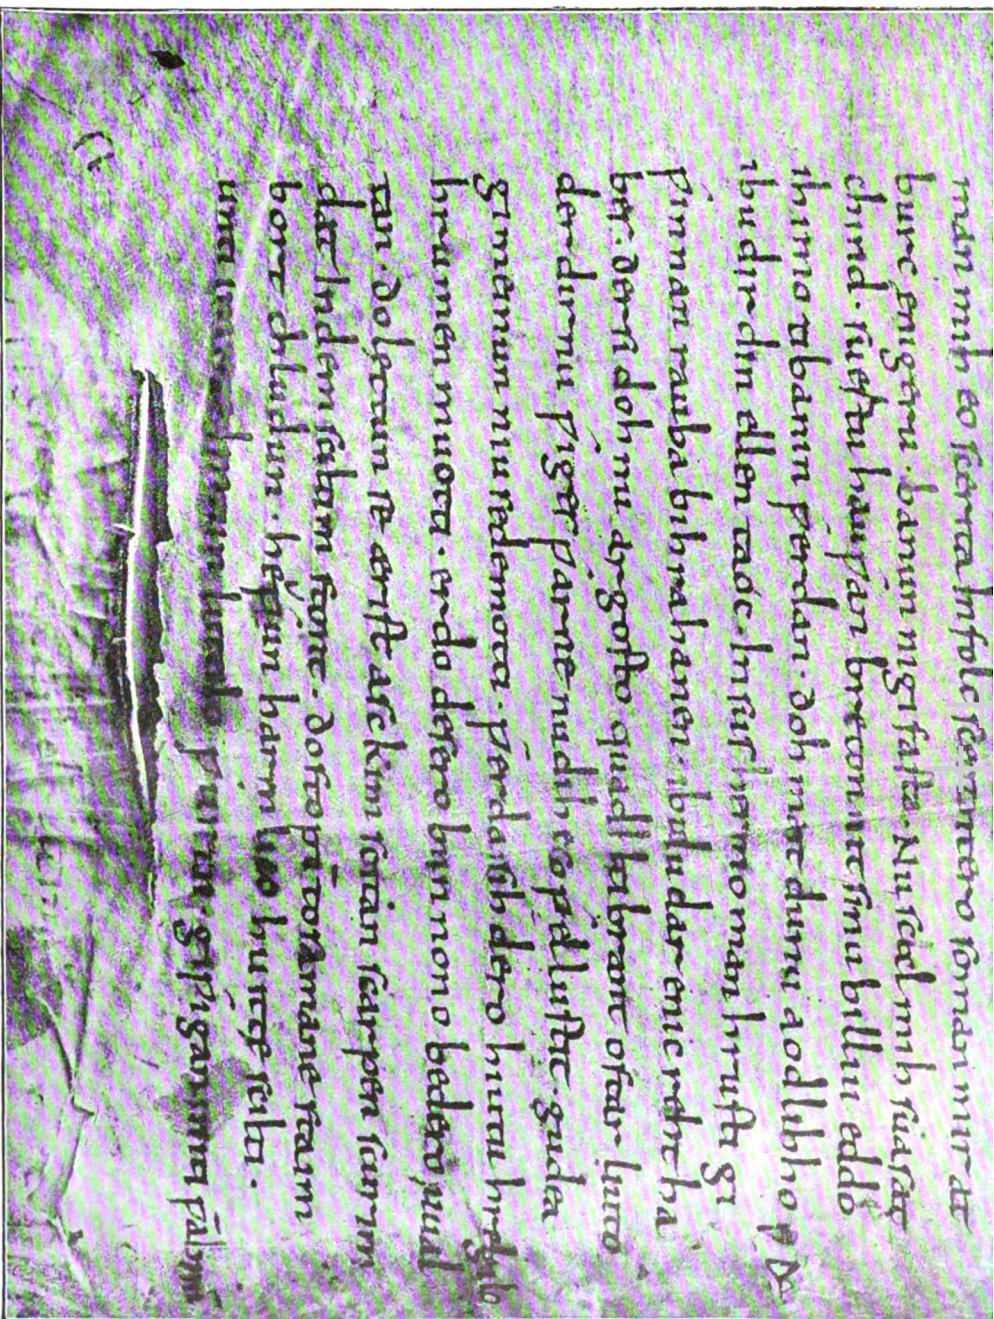 man mih eo scerita Infolc sceotantero so man mir at
burc ęnigeru. banun nigifasta. Nu scal mih suasat
chind. suertu hauƿan bretonmitsinu billiu eddo
ihimo tibanin ƿerdan. doh maht dunu aodlihho
ibudir din ellen taoc. Insus heremo man hrusti gi
ƿinnan rauba bihrahanen ibudu dar enic reht ha
bes. dersi doh nu argosto quad hiltibrant ostar liuto
der dir nu ƿiges ƿarne nudih es so ƿel lustit. gudea
gimeinun niuse demotti. ƿerdar sih dero hiutu hregilo
hrumen muotti. erdo desero brunnono bedero uual
tan. do lęttun se ęrist asckim scritan scarpen scurim
dat Indem sciltim stont. dosto ptū tosamane staim
bort chludun. heƿun harmlicco huitte scilti.
unti ƿurtun giƿigan miti ƿābnū